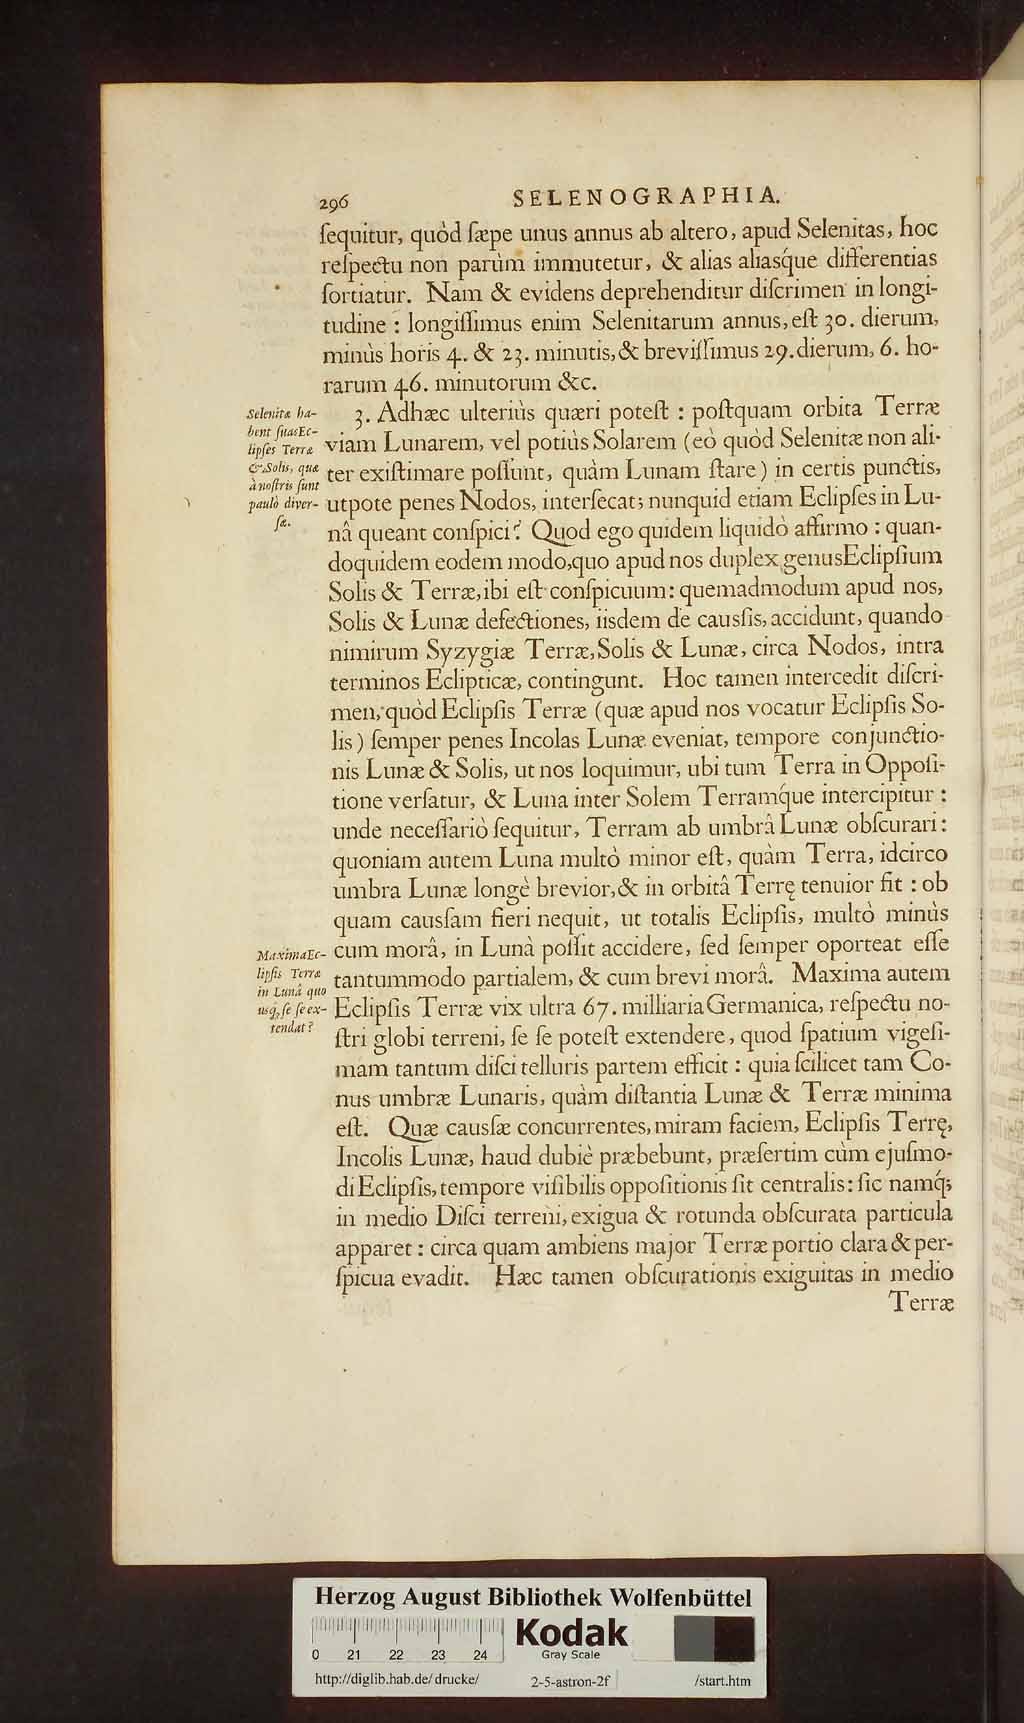 296
SELENOGRAPHIA.
ſequitur, quòd ſæpe unus annus ab altero, apud Selenitas, hoc
reſpectu non parùm immutetur, & alias aliasq́ue differentias
ſortiatur. Nam & evidens deprehenditur diſcrimen in longi-
tudine : longiſſimus enim Selenitarum annus, eſt 30. dierum,
minùs horis 4. & 23. minutis, & breviſſimus 29. dierum, 6. ho-
rarum 46. minutorum &c.
Selenitæ ha-
bent ſuas Ec-
lipſes Terræ
& Solis, quæ
à noſtris ſunt
paulò diver-
ſæ.
3. Adhæc ulteriùs quæri poteſt : poſtquam orbita Terræ
viam Lunarem, vel potiùs Solarem (eò quòd Selenitæ non ali-
ter exiſtimare poſſunt, quàm Lunam ſtare) in certis punctis,
utpote penes Nodos, interſecat; nunquid etiam Eclipſes in Lu-
nâ queant conſpici? Quod ego quidem liquidò affirmo : quan-
doquidem eodem modo, quo apud nos duplex genus Eclipſium
Solis & Terræ, ibi eſt conſpicuum : quemadmodum apud nos,
Solis & Lunæ defectiones, iisdem de cauſſis, accidunt, quando
nimirum Syzygiæ Terræ, Solis & Lunæ, circa Nodos, intra
terminos Eclipticæ, contingunt. Hoc tamen intercedit diſcri-
men, quòd Eclipſis Terræ (quæ apud nos vocatur Eclipſis So-
lis) ſemper penes Incolas Lunæ eveniat, tempore conjunctio-
nis Lunæ & Solis, ut nos loquimur, ubi tum Terra in Oppoſi-
tione verſatur, & Luna inter Solem Terramq́ue intercipitur :
unde neceſſariò ſequitur, Terram ab umbrâ Lunæ obſcurari :
quoniam autem Luna multò minor eſt, quàm Terra, idcirco
umbra Lunæ longè brevior, & in orbitâ Terrę tenuior fit : ob
quam cauſſam fieri nequit, ut totalis Eclipſis, multò minùs
cum morâ, in Lunà poſſit accidere, ſed ſemper oporteat eſſe
tantummodo partialem, & cum brevi morâ. Maxima autem
Eclipſis Terræ vix ultra 67. milliaria Germanica, reſpectu no-
ſtri globi terreni, ſe ſe poteſt extendere, quod ſpatium vigeſi-
mam tantum diſci telluris partem efficit : quia ſcilicet tam Co-
nus umbræ Lunaris, quàm diſtantia Lunæ & Terræ minima
eſt. Quæ cauſſæ concurrentes, miram faciem, Eclipſis Terrę,
Incolis Lunæ, haud dubiè præbebunt, præſertim cùm ejuſmo-
di Eclipſis, tempore viſibilis oppoſitionis ſit centralis : ſic namq́;
in medio Diſci terreni, exigua & rotunda obſcurata particula
apparet : circa quam ambiens major Terræ portio clara & per-
ſpicua evadit. Hæc tamen obſcurationis exiguitas in medio
Terræ
Maxima Ec-
lipſis Terræ
in Lunâ quo
usq́, ſe ſe ex-
tendat?
Herzog August Bibliothek Wolfenbüttel
0 21 22 23 24
Kodak
Gray Scale
http://diglib.hab.de/drucke/ 2-5-astron-2f /start.htm